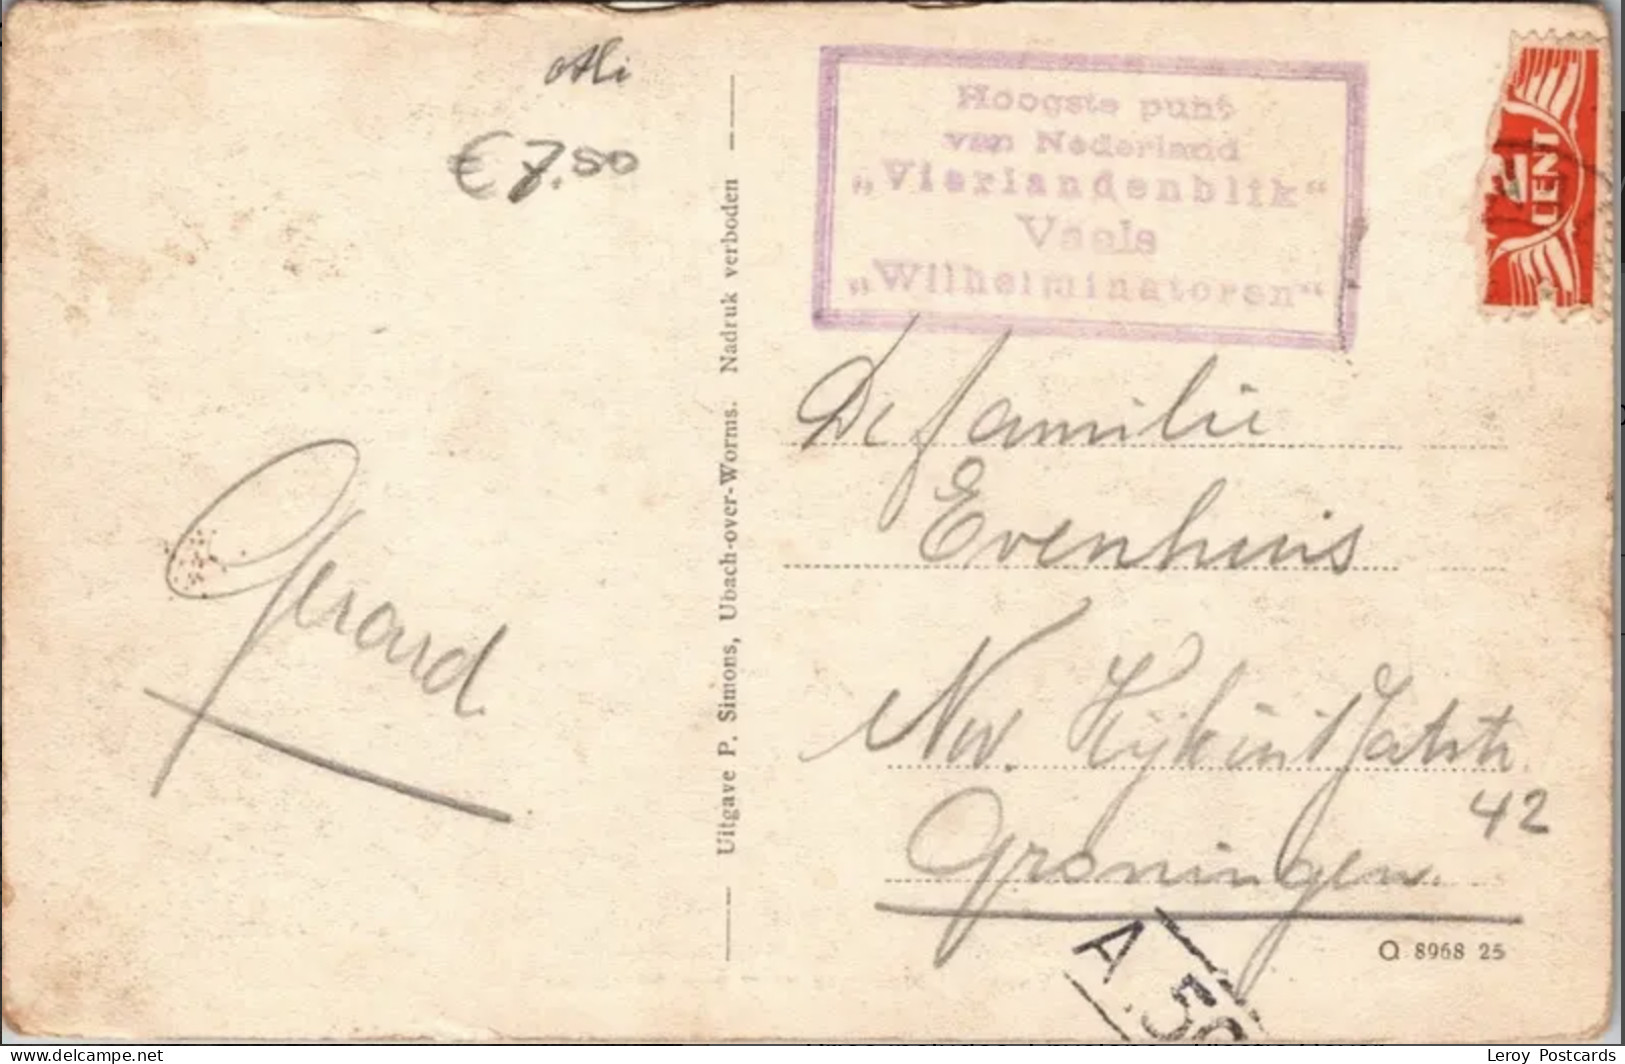 € 7.50
Hoogste punt
van Nederland
„Vierlandenblik“
Vaals
„Wilhelminatoren“
CENT
De familie
Evenhuis
Nw. Kijk in 't Jatstr.
42
Groningen.
Gerard
Uitgave P. Simons, Ubach-over-Worms. Nadruk verboden
Q 8968 25
A
delcampe.net
Leroy Postcards